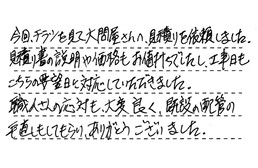 今回、チラシを見て大問屋さんへ、見積りを依頼しました。
見積り書の説明や価格もお値打ちでしたし、工事日も
こちらの希望日に対応していただきました。
職人さんの応対も、大変良く、既設の配管の
手直しもしてもらい、ありがとうございました。